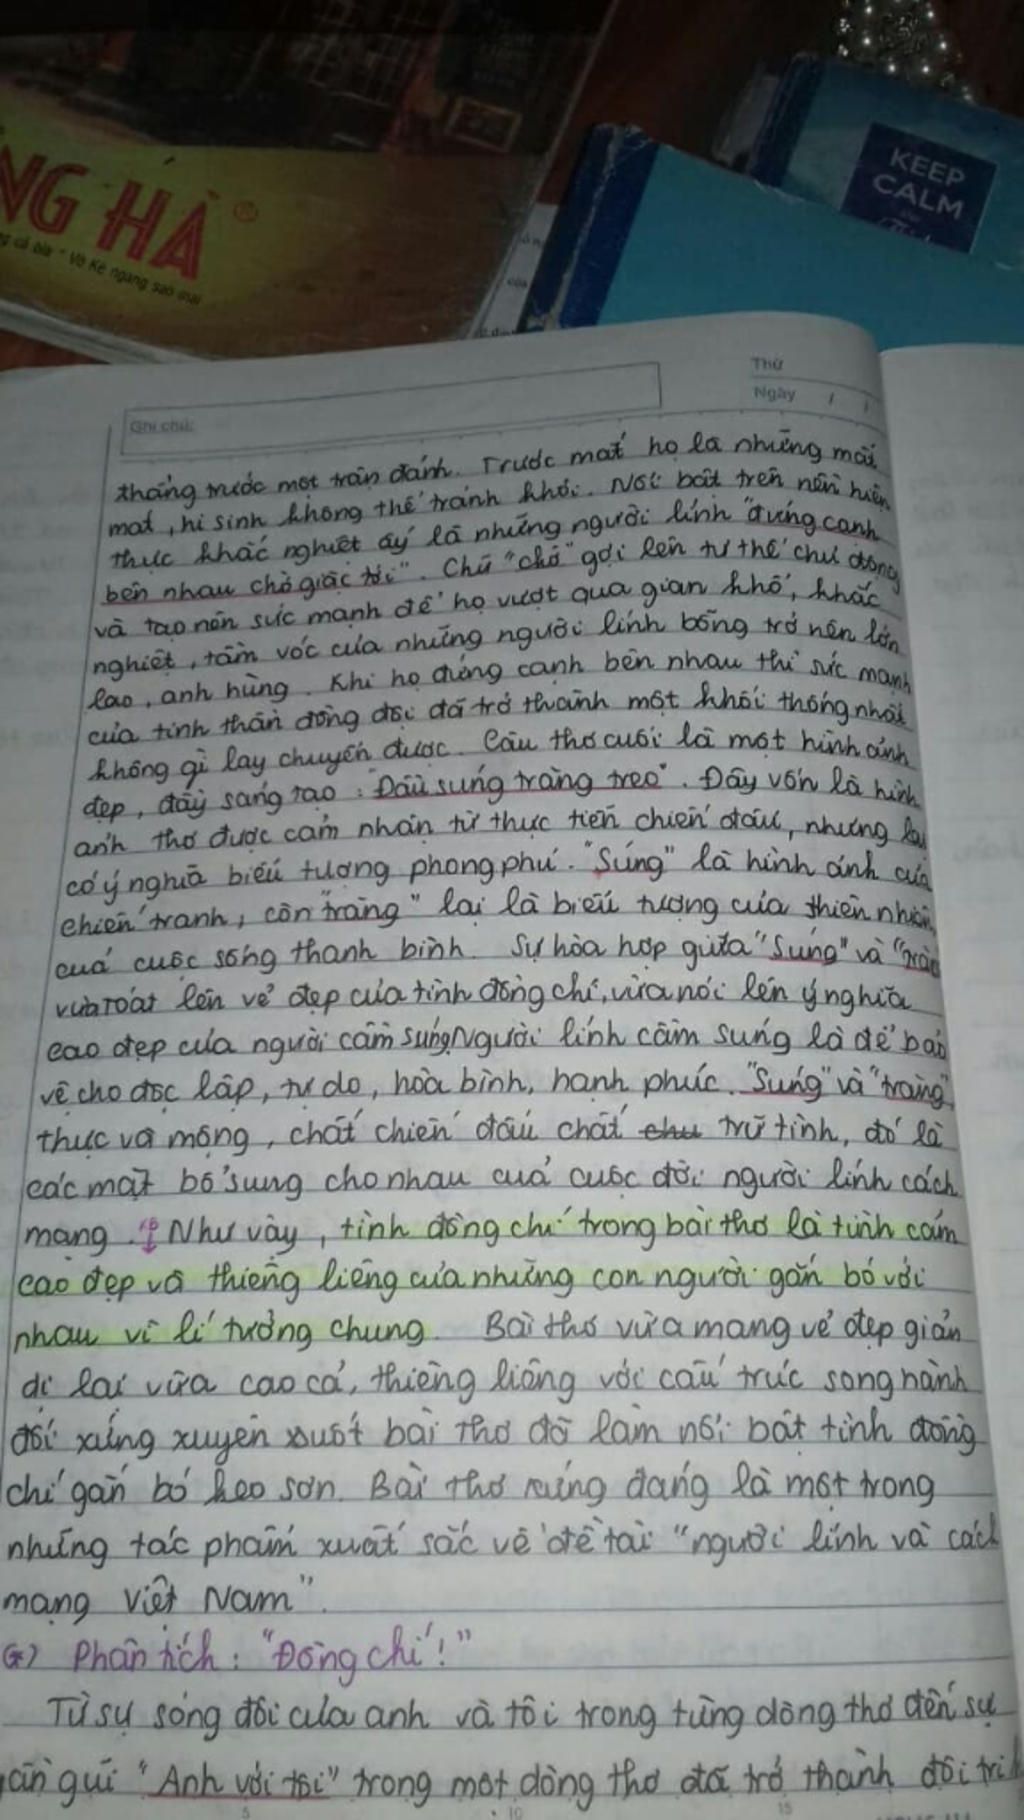 NG HÀ ®
ng cá bìa " Vở Kẻ ngang sao mai
KEEP
CALM
Thứ
Ngày / /
Ghi chú:
thẳng trước một trận đánh. Trước mắt họ là những mất
mát, hi sinh không thể tránh khỏi. Nổi bật trên nền hiện
thực khắc nghiệt ấy là những người lính "đứng cạnh
bên nhau chờ giặc tới". Chữ "chờ" gợi lên tư thế chủ động
và tạo nên sức mạnh để họ vượt qua gian khổ, khắc
nghiệt, tầm vóc của những người lính bỗng trở nên lớn
lao, anh hùng. Khi họ đứng cạnh bên nhau thì sức mạnh
của tinh thần đồng đội đã trở thành một khối thống nhất
không gì lay chuyển được. Câu thơ cuối là một hình ảnh
đẹp, đầy sáng tạo: "Đầu súng trăng treo". Đây vốn là hình
ảnh thơ được cảm nhận từ thực tiễn chiến đấu, nhưng lại
có ý nghĩa biểu tượng phong phú. "Súng" là hình ảnh của
chiến tranh, còn "trăng" lại là biểu tượng của thiên nhiên
của cuộc sống thanh bình. Sự hòa hợp giữa "Súng" và "trăng
vừa toát lên vẻ đẹp của tình đồng chí, vừa nói lên ý nghĩa
cao đẹp của người cầm súng. Người lính cầm súng là để bảo
vệ cho độc lập, tự do, hòa bình, hạnh phúc. "Súng" và "trăng",
thực và mộng, chất chiến đấu chất chu trữ tình, đó là
các mặt bổ sung cho nhau của cuộc đời người lính cách
mạng. Như vậy, tình đồng chí trong bài thơ là tình cảm
cao đẹp và thiêng liêng của những con người gắn bó với
nhau vì lí tưởng chung. Bài thơ vừa mang vẻ đẹp giản
dị lại vừa cao cả, thiêng liêng với cấu trúc song hành
đối xứng xuyên suốt bài thơ đã làm nổi bật tình đồng
chí gắn bó keo sơn. Bài thơ xứng đáng là một trong
những tác phẩm xuất sắc về đề tài "người lính và cách
mạng Việt Nam".
Phân tích: "Đồng chí!"
Từ sự sóng đôi của anh và tôi trong từng dòng thơ đến sự
gần gũi "Anh với tôi" trong một dòng thơ đã trở thành đôi tri
5 10 15